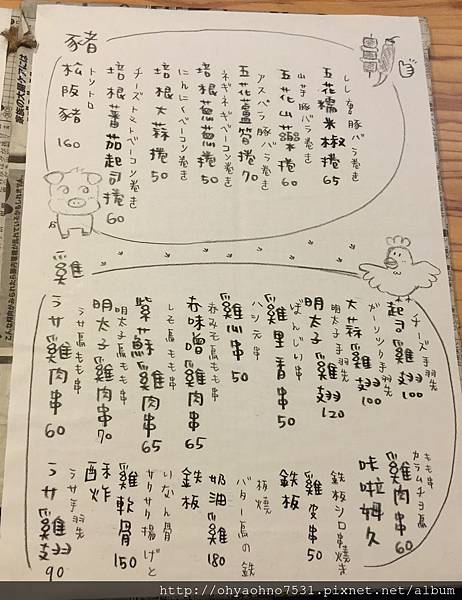 豬
ししとう豚バラ巻き
五花糯米椒捲 65
山芋豚バラ巻き
五花山藥捲 60
アスパラ豚バラ巻き
五花蘆筍捲 70
ネギネギベーコン巻き
培根蔥蔥捲 50
にんにくベーコン巻き
培根大蒜捲 50
チーズトマトベーコン巻き
培根蕃茄起司捲 60
トントロ
松阪豬 160
雞
チーズ手羽先
起司雞翅 100
ガーリック手羽先
大蒜雞翅 100
明太子手羽先
明太子雞翅 120
ぼんじり串
雞里香串 50
ハツ元串
雞心串 50
赤みそ鳥もも串
赤味噌雞肉串 65
しそ鳥もも串
紫蘇雞肉串 65
明太子鳥もも串
明太子雞肉串 70
うサ鳥もも串
うサ雞肉串 60
カラムーチョ鳥
もも串
咔啦姆久
雞肉串 60
鉄板シロ串焼き
鉄板
雞皮串 50
バター鳥の鉄
板焼
鉄板
奶油雞 180
サクサク揚げと
いなん骨
酥炸
雞軟骨 150
うサ手羽先
うサ雞翅 90
家族の大腸ケアには
http://ohyaohno7531.pixnet.net/album